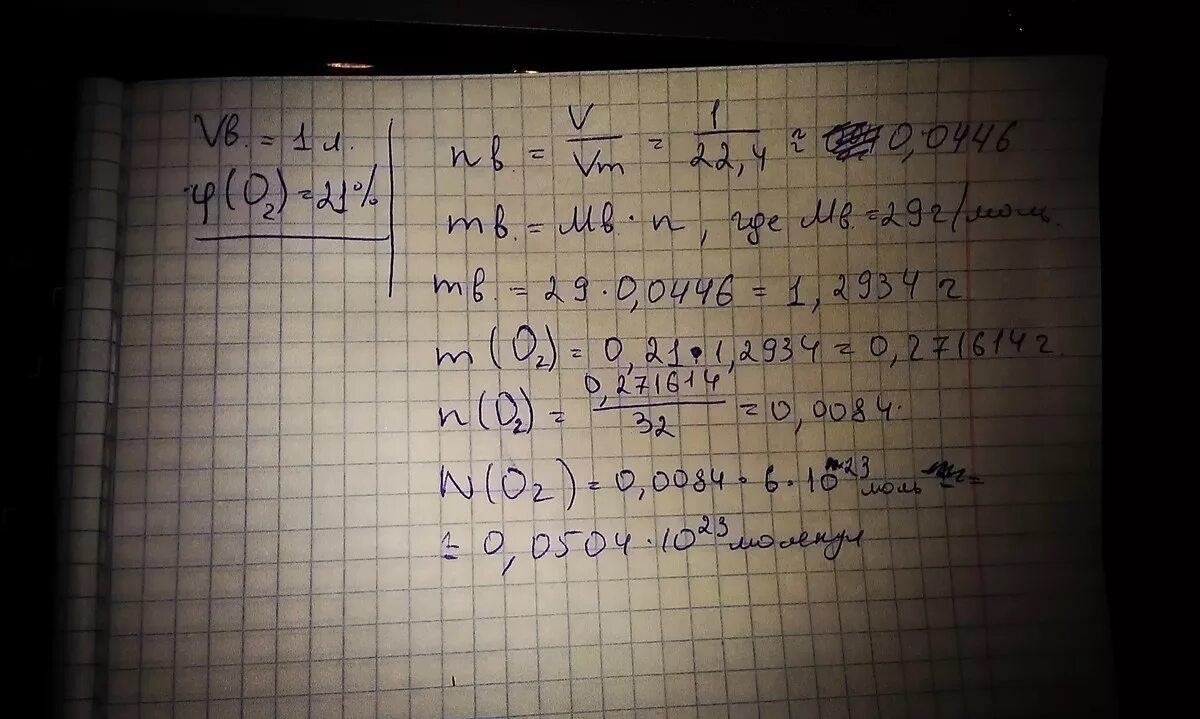 Vв. = 1 л.
φ(O₂) = 21%
nв = V/Vm = 1/22,4 ≈ 0,0446
mв. = Mв · n, где Mв. = 29 г/моль.
mв. = 29 · 0,0446 = 1,2934 г
m(O₂) = 0,21 · 1,2934 = 0,271614 г.
n(O₂) = 0,271614/32 = 0,0084.
N(O₂) = 0,0084 · 6 · 10²³ моль =
= 0,0504 · 10²³ молекул